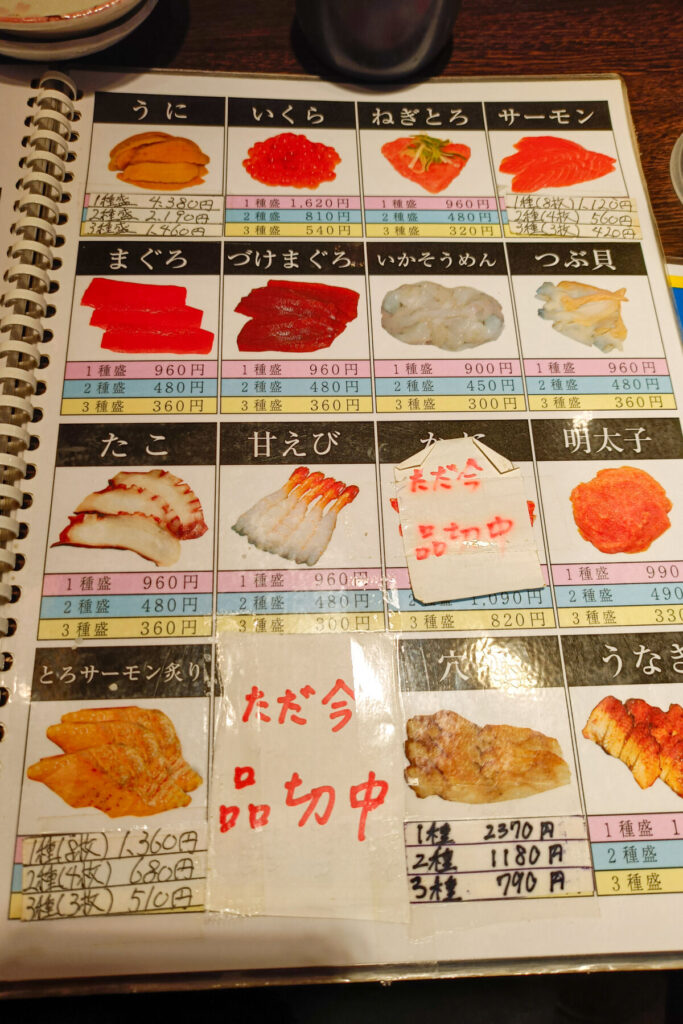 うに
いくら
ねぎとろ
サーモン
1種盛 4.380円
2種盛 2.190円
3種盛 1.460円
1種盛 1,620円
2種盛 810円
3種盛 540円
1種盛 960円
2種盛 480円
3種盛 320円
1種(8枚) 1.120円
2種(4枚) 560円
3種(3枚) 420円
まぐろ
づけまぐろ
いかそうめん
つぶ貝
1種盛 960円
2種盛 480円
3種盛 360円
1種盛 960円
2種盛 480円
3種盛 360円
1種盛 900円
2種盛 450円
3種盛 300円
1種盛 960円
2種盛 480円
3種盛 360円
たこ
甘えび
明太子
ただ今
品切中
1種盛 960円
2種盛 480円
3種盛 360円
1種盛 960円
2種盛 480円
3種盛 300円
1,090円
3種盛 820円
1種盛 990
2種盛 490
3種盛 330
とろサーモン炙り
ただ今
品切中
穴
うなぎ
1種(8枚) 1.360円
2種(4枚) 680円
3種(3枚) 510円
1種 2370円
2種 1180円
3種 790円
1種盛 1
2種盛
3種盛